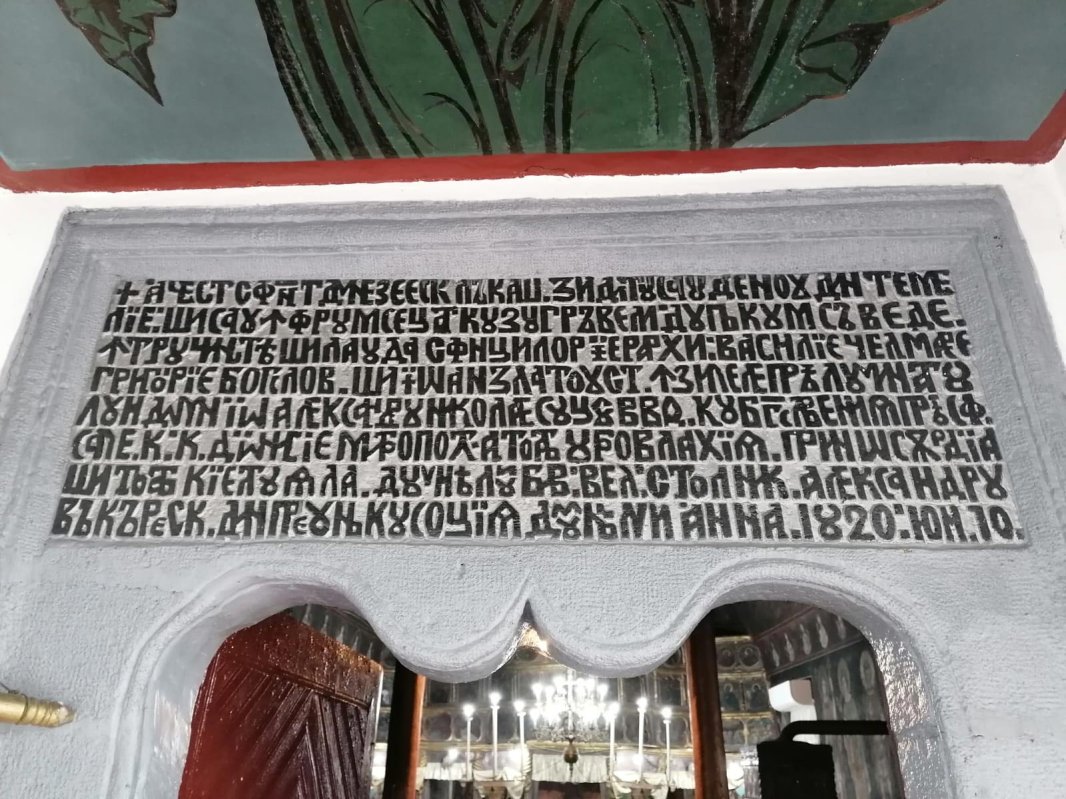 + АЧЕСТ СФН҃Т ДМНЕЗЕЕСК ЛЪКАШ. ЗИДИТУСАУ ДЕНОУ ДИН ТЕМЕ
ЛІЕ: ШИ САУ ꙟФРУМСЕЦАТ КУ ЗУГРЪВЕЛИ ДУПЪ КУМ СЪ ВЕДЕ.
ꙞТРУ ЧИНСТѢ ШИ ЛАУДА СФИНЦИЛОР ІЕРАРХИ: ВАСИЛІЕ ЧЕЛ МАРЕ
ГРИГОРІЕ БОГСЛОВ. ШИ ІѠАН ЗЛАТОУСТ. Ꙟ ЗИЛЕЛЕ ПРѢ ЛУМИНАТУ
ЛУИ ДѠМН ІѠ АЛЕКСАНДРУ НИКОЛАЕ СУЦУ ВВД. КУ БГСЛВЕНІѦ ПРѢ СФ.
СПЕ. К. К. ДІѠНИСІЕ МИТРОПОЛИТ А ТОАТЪ УГРОВЛАХІѦ. ПРИН ѠСЖРДІА
ШИ ТОАТЪ КІЕЛТУѦЛА. ДУМНѢЛУЙ БИВ: ВЕЛ: СТОЛНИК. АЛЕКСАНДРУ
ВЪКЪРЕСК. ДИНПРЕУНЪ КУ СОЦІѦ ДУМѢЛИ АННА. 1820: ЮН. 10.